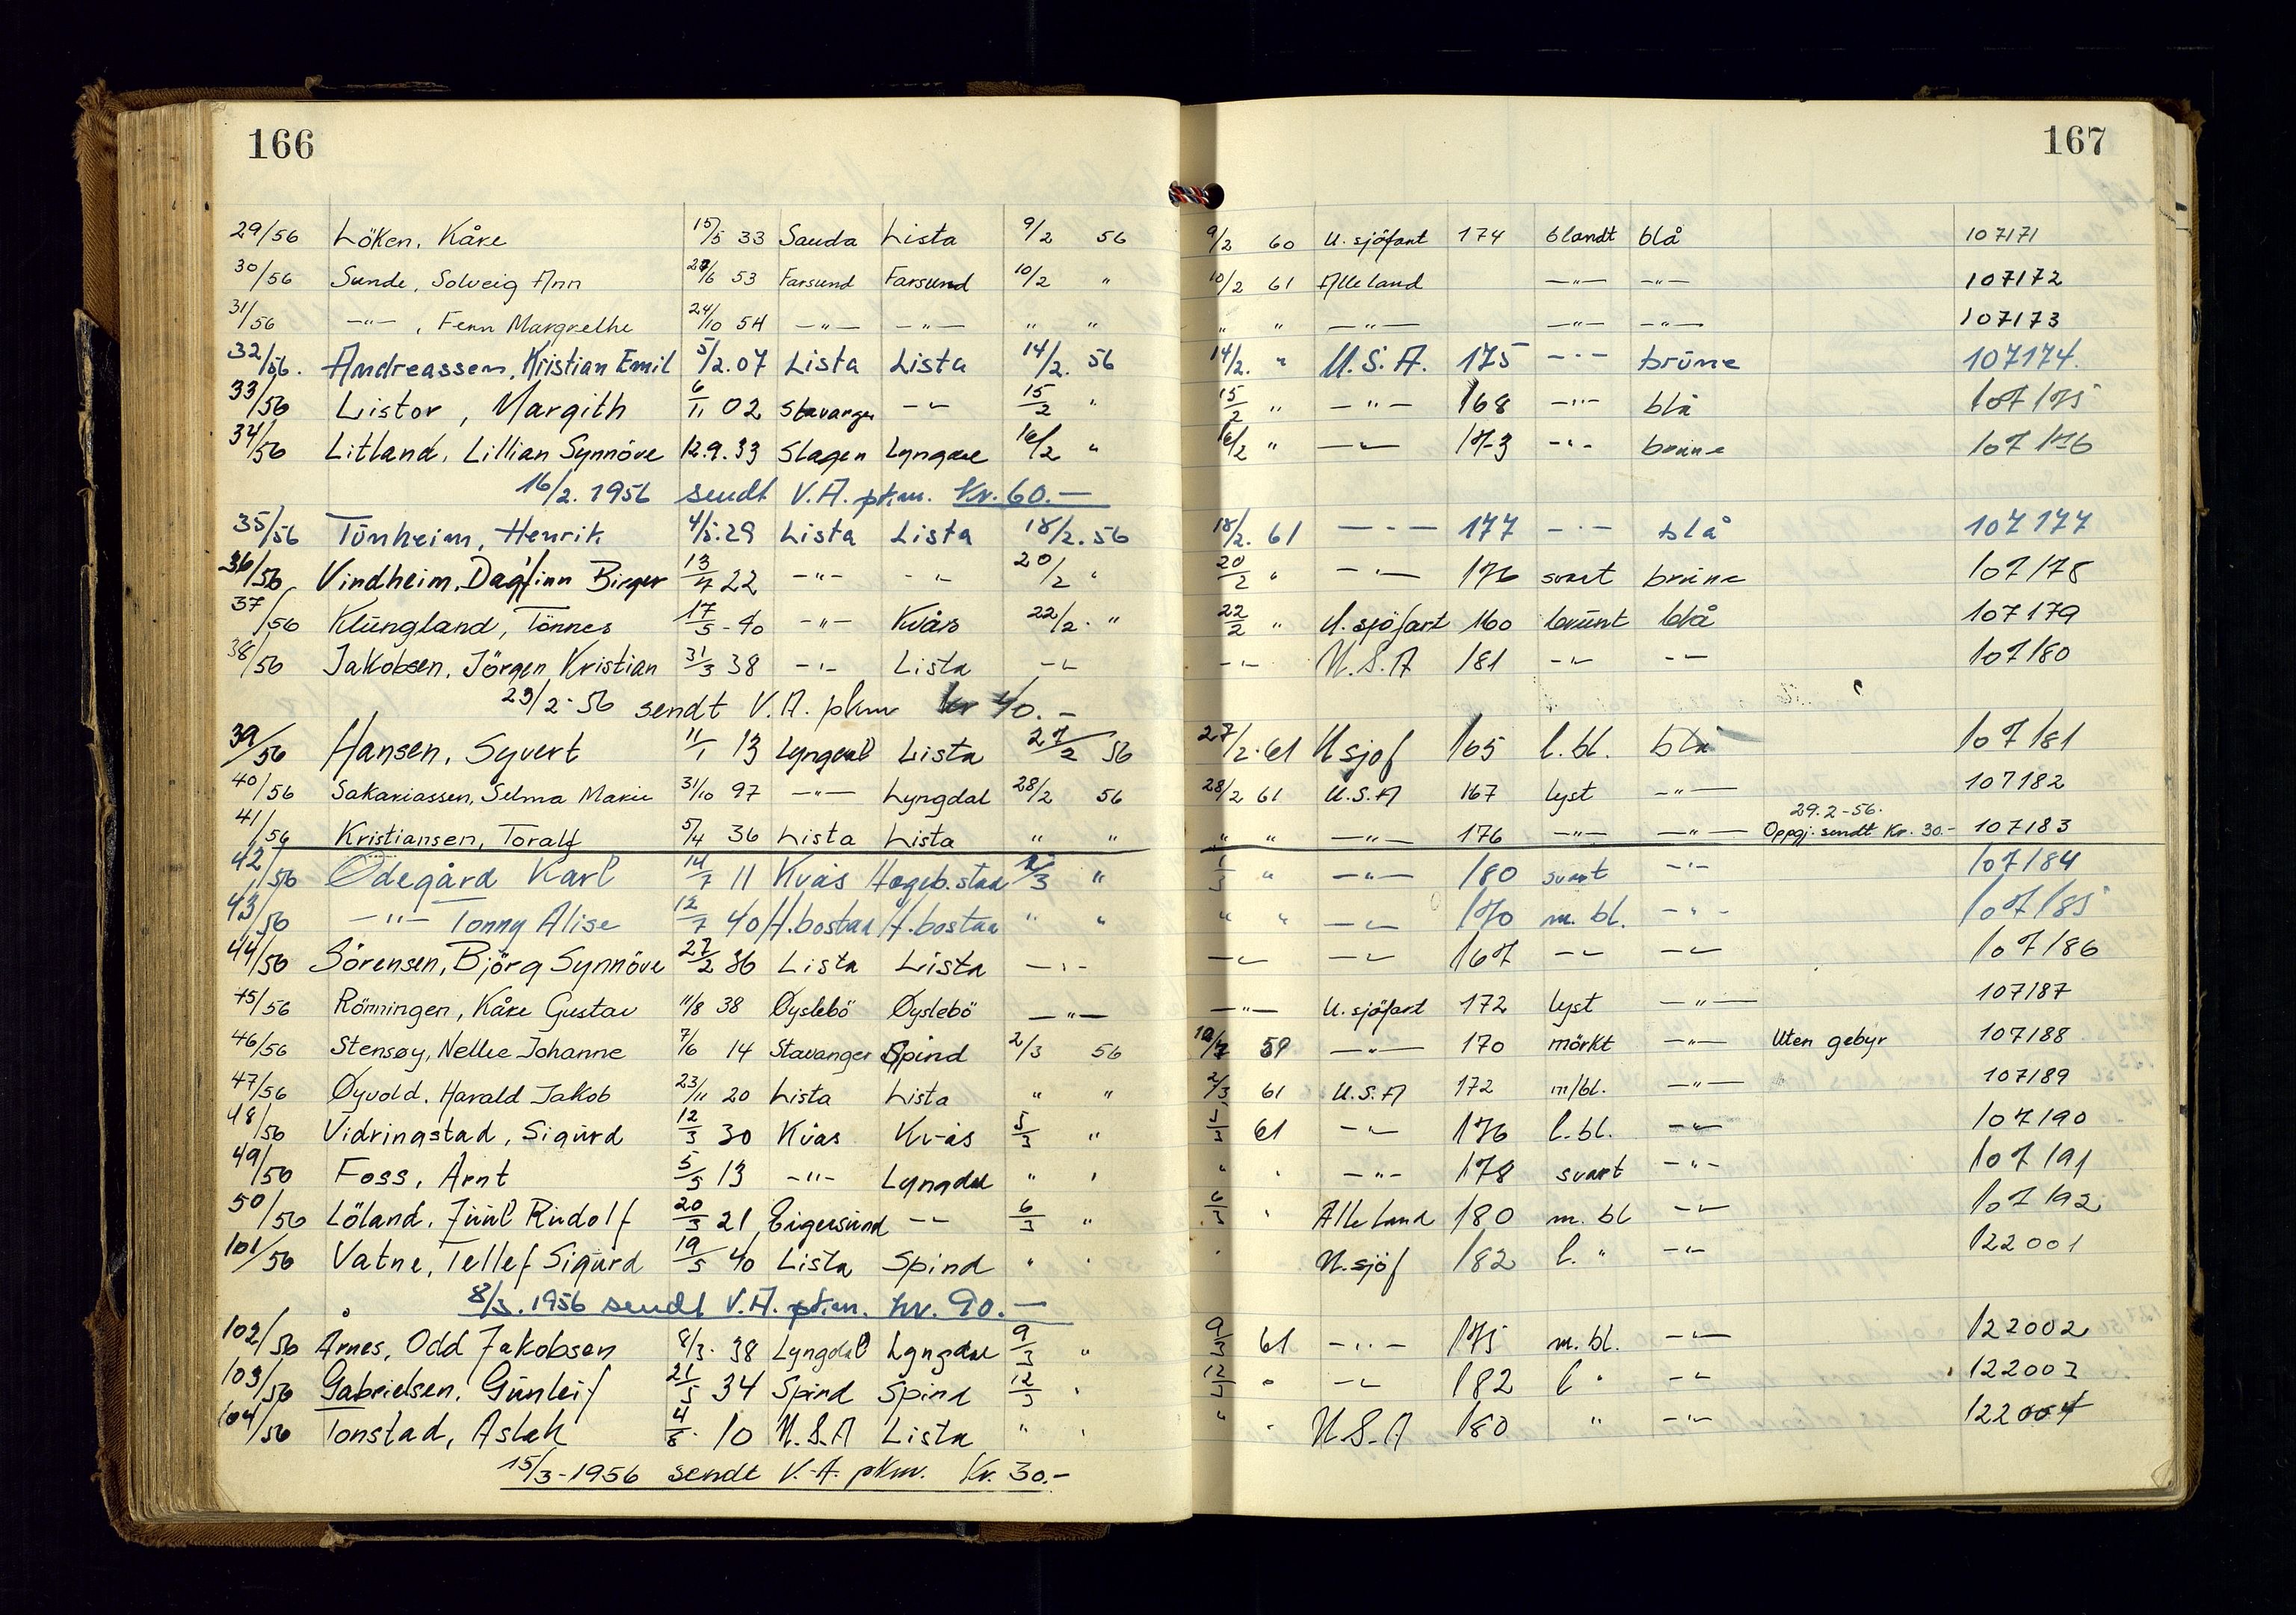 166
167
29/56 Löken, Kåre 15/5 33 Sauda Lista 9/2 56 9/2 60 U. sjöfart 174 blandt blå 107171
30/56 Sunde, Solveig Ann 27/6 53 Farsund Farsund 10/2 " 10/2 61 Alle land —"— —"— 107172
31/56 —"—, Fenn Margrethe 24/10 54 —"— —"— " " " " —"— —"— —"— 107173
32/56. Andreassen, Kristian Emil 5/2.07 Lista Lista 14/2. 56 14/2. " U.S.A. 175 —"— brune 107174.
33/56 Listor, Margith 6/11 02 Stavanger —"— 15/2 " 15/2 " —"— 168 —"— blå 107175
34/56 Litland, Lillian Synnöve 12.9.33 Slagen Lyngdal 16/2 " 16/2 " —"— 173 —"— brune 107176
16/2. 1956 sendt V.A. pkm. Kr. 60.—
35/56 Tunheim, Henrik 4/5.29 Lista Lista 18/2. 56 18/2. 61 —"— 177 —"— blå 107177
36/56 Vindheim, Dagfinn Birger 13/7 22 —"— —"— 20/2 " 20/2 " —"— 176 svart brune 107178
37/56 Klungland, Tönnes 17/5-40 —"— Kvås 22/2. " 22/2 " U. sjöfart 160 brunt blå 107179
38/56 Jakobsen, Jörgen Kristian 31/3 38 —"— Lista —"— —"— U.S.A 181 —"— —"— 107180
23/2-56 sendt V.A. pkm kr 40.—
39/56 Hansen, Syvert 11/1 13 Lyngdal Lista 27/2 56 27/2.61 U sjöf 165 l.bl. blå 107181
40/56 Sakariassen, Selma Marie 31/10 97 —"— Lyngdal 28/2 56 28/2 61 U.S.A 167 lyst —"— 107182
29.2-56.
41/56 Kristiansen, Toralf 5/4 36 Lista Lista " " " " —"— 176 —"— —"— Oppgj. sendt Kr. 30.- 107183
42/56 Ödegård Karl 14/7 11 Kvås Hægeb.stad 1/3 " 1/3 " —"— 180 svart —"— 107184
43/56 —"— Tonny Alise 12/7 40 H.bostad H.bostad " " " " —"— 170 m. bl. —"— 107185
44/56 Sörensen, Björg Synnöve 27/2 36 Lista Lista —"— —"— —"— 167 —"— —"— 107186
45/56 Rönningen, Kåre Gustav 11/8 38 Øyslebö Øyslebö —"— —"— U. sjöfart 172 lyst —"— 107187
46/56 Stensøy, Nellie Johanne 7/6 14 Stavanger Spind 2/3 56 59 —"— 170 mörkt —"— Uten gebyr 107188
47/56 Øyvold. Harald Jakob 23/11 20 Lista Lista " " 2/3 61 U.S.A 172 m/bl. —"— 107189
48/56 Vidringstad, Sigurd 12/3 30 Kvås Kvås 5/3 " 5/3 61 —"— 176 l.bl. —"— 107190
49/56 Foss, Arnt 5/5 13 —"— Lyngdal " " " " —"— 178 svart —"— 107191
50/56 Löland, Juul Rudolf 20/3 21 Eigersund —"— 6/3 " 6/3 " Alle land 180 m. bl —"— 107192
101/56 Vatne, Tellef Sigurd 19/5 40 Lista Spind " " " U.sjöf 182 l. " —"— 122001
8/3. 1956 sendt V.A. pkm. kr. 90.—
102/56 Årnes, Odd Jakobsen 8/3. 38 Lyngdal Lyngdal 9/3 " 9/3 61 —"— 175 m. bl. —"— 122002
103/56 Gabrielsen, Gunleif 21/5 34 Spind Spind 12/3 " 12/3 " —"— 182 l " —"— 122003
104/56 Tonstad, Aslak 4/8. 10 U.S.A Lista " " " " U.S.A 180 " —"— 122004
15/3-1956 sendt V.A. pkm. Kr. 30.-